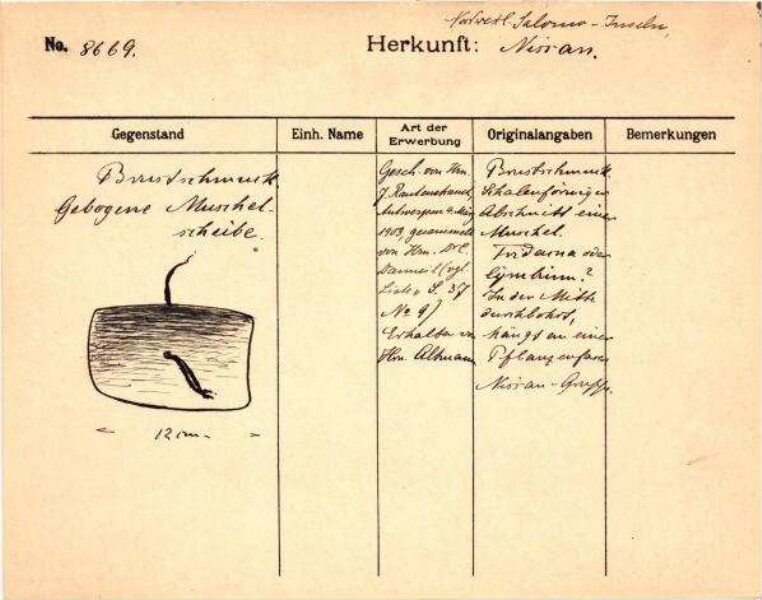 Nordwestl. Salomo-Inseln,
No. 8669.
Herkunft: Nissan.
Gegenstand
Einh. Name
Art der Erwerbung
Originalangaben
Bemerkungen
Brustschmuck
Gebogene Muschel-
scheibe.
12 cm.
Gesch. von Hrn.
J. Rautenstrauch,
Antwerpen
1903, gesammelt
von Hrn. Dr. C.
Danneil (vgl.
Liste S. 37
No 9)
Erhalten von
Hrn. Altmann
Brustschmuck.
Schalenförmiger
Abschnitt einer
Muschel.
Tridacna oder
Cymbium?
In der Mitte
durchbohrt,
hängt an einer
Pflanzenfaser
Nissan-Gruppe.